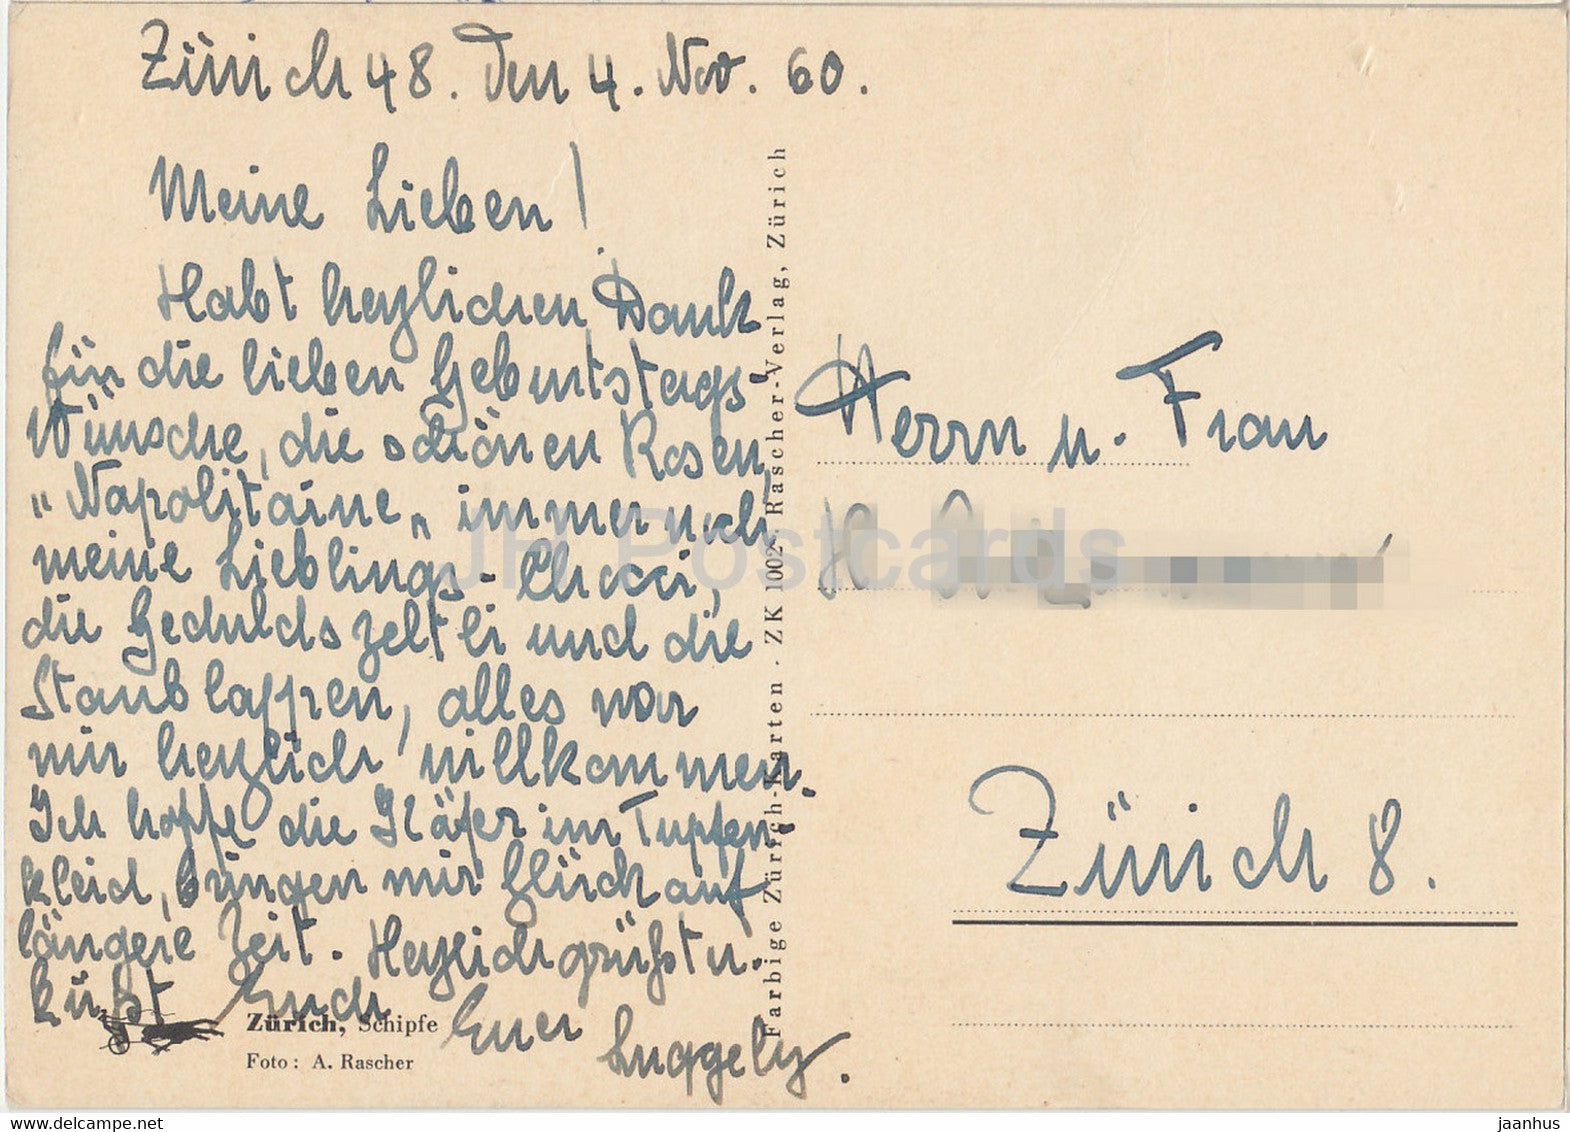 Zürich 48. Den 4. Nov. 60.
Meine Lieben!
Habt herzlichen Dank
für die lieben Geburtstags-
Wünsche, die schönen Rosen,
"Napolitaine" immer noch
meine Lieblings-
die Geduldszeltli und die
Staublappen, alles war
mir herzlich willkommen.
Ich hoffe die Käfer im Tupfen-
kleid, bringen mir Glück auf
längere Zeit. Herzlich grüsst u.
küsst Euch
Euer
Luggely.
Zürich, Schipfe
Foto: A. Rascher
Farbige Zürich-Karten · ZK 1002 Rascher-Verlag, Zürich
Herrn u. Frau
Zürich 8.
JH Postcards
www.delcampe.net
jaanhus